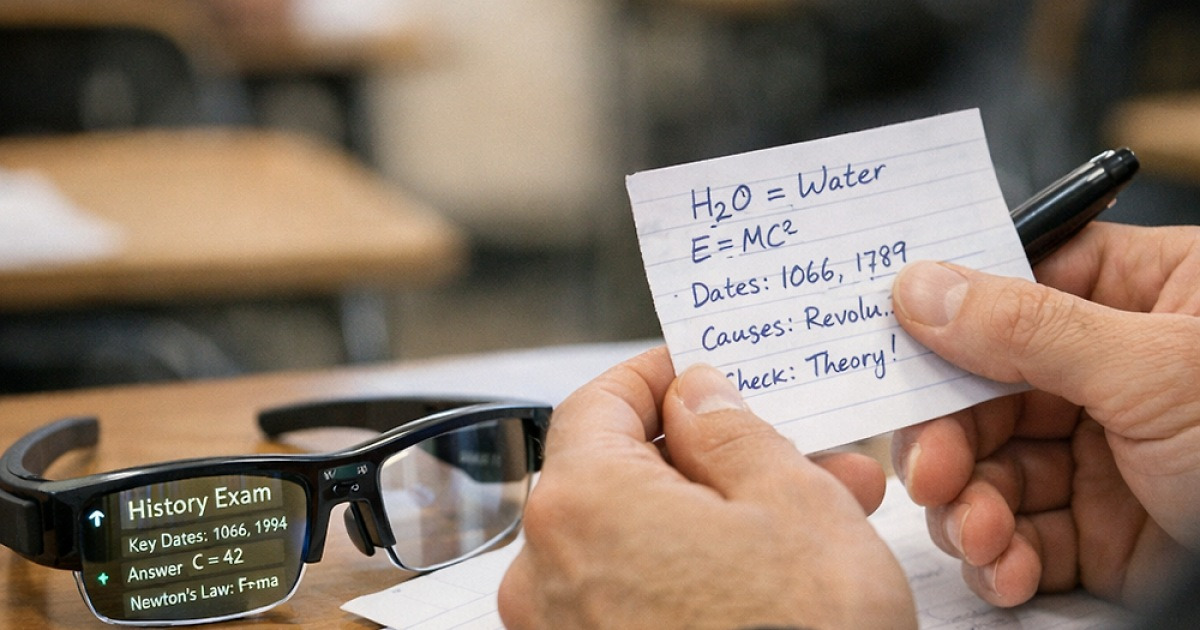 H₂O = Water
E = MC²
Dates: 1066, 1789
Causes: Revolu..
Theory!
History Exam
Key Dates: 1066, 1994
Answer C = 42
Newton's Law: